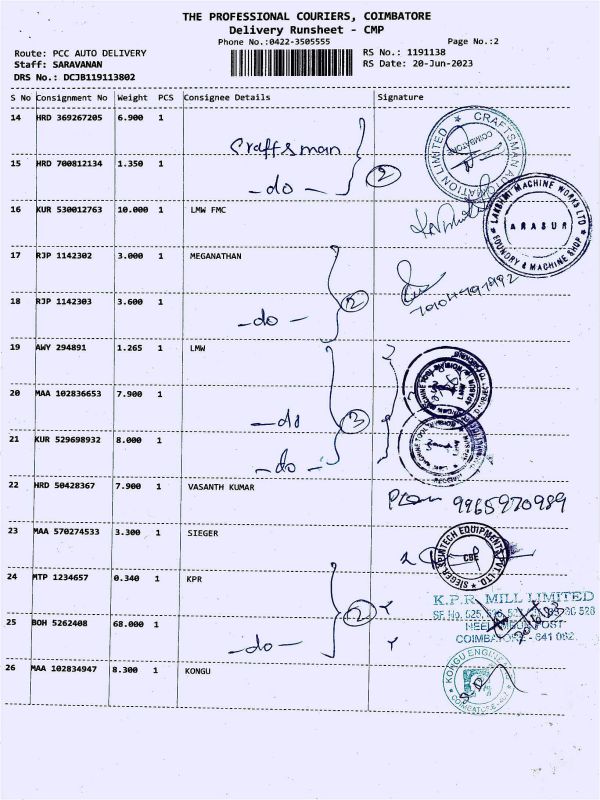 THE PROFESSIONAL COURIERS, COIMBATORE
Delivery Runsheet - CMP
Phone No.:0422-3505555 Page No.:2
Route: PCC AUTO DELIVERY RS No.: 1191138
Staff: SARAVANAN RS Date: 20-Jun-2023
DRS No.: DCJB119113802
S No Consignment No Weight PCS Consignee Details Signature
14 HRD 369267205 6.900 1
Craftsman
CRAFTSMAN AUTOMATION LIMITED
COIMBATORE
15 HRD 700812134 1.350 1
-do-
2
16 KUR 530012763 10.000 1 LMW FMC
LAKSHMI MACHINE WORKS LTD
ARASUR
FOUNDRY & MACHINE SHOP
17 RJP 1142302 3.000 1 MEGANATHAN
18 RJP 1142303 3.600 1
-do-
2
19 AWY 294891 1.265 1 LMW
20 MAA 102836653 7.900 1
-do
3
21 KUR 529698932 8.000 1
-do-
22 HRD 50428367 7.900 1 VASANTH KUMAR
9965970989
23 MAA 570274533 3.300 1 SIEGER
SIEGER SPINTECH EQUIPMENTS PVT. LTD
CBE
24 MTP 1234657 0.340 1 KPR
2
K.P.R. MILL LIMITED
25 BOH 5262408 68.000 1
-do-
POST
COIMBATORE - 641 062.
26 MAA 102834947 8.300 1 KONGU
KONGU ENGINE
COIMBATORE